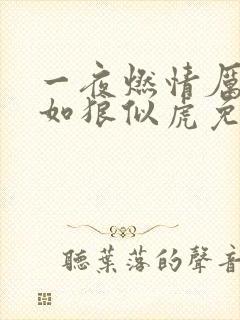 一夜燃情厲
如狼似虎免
聽葉落的聲音